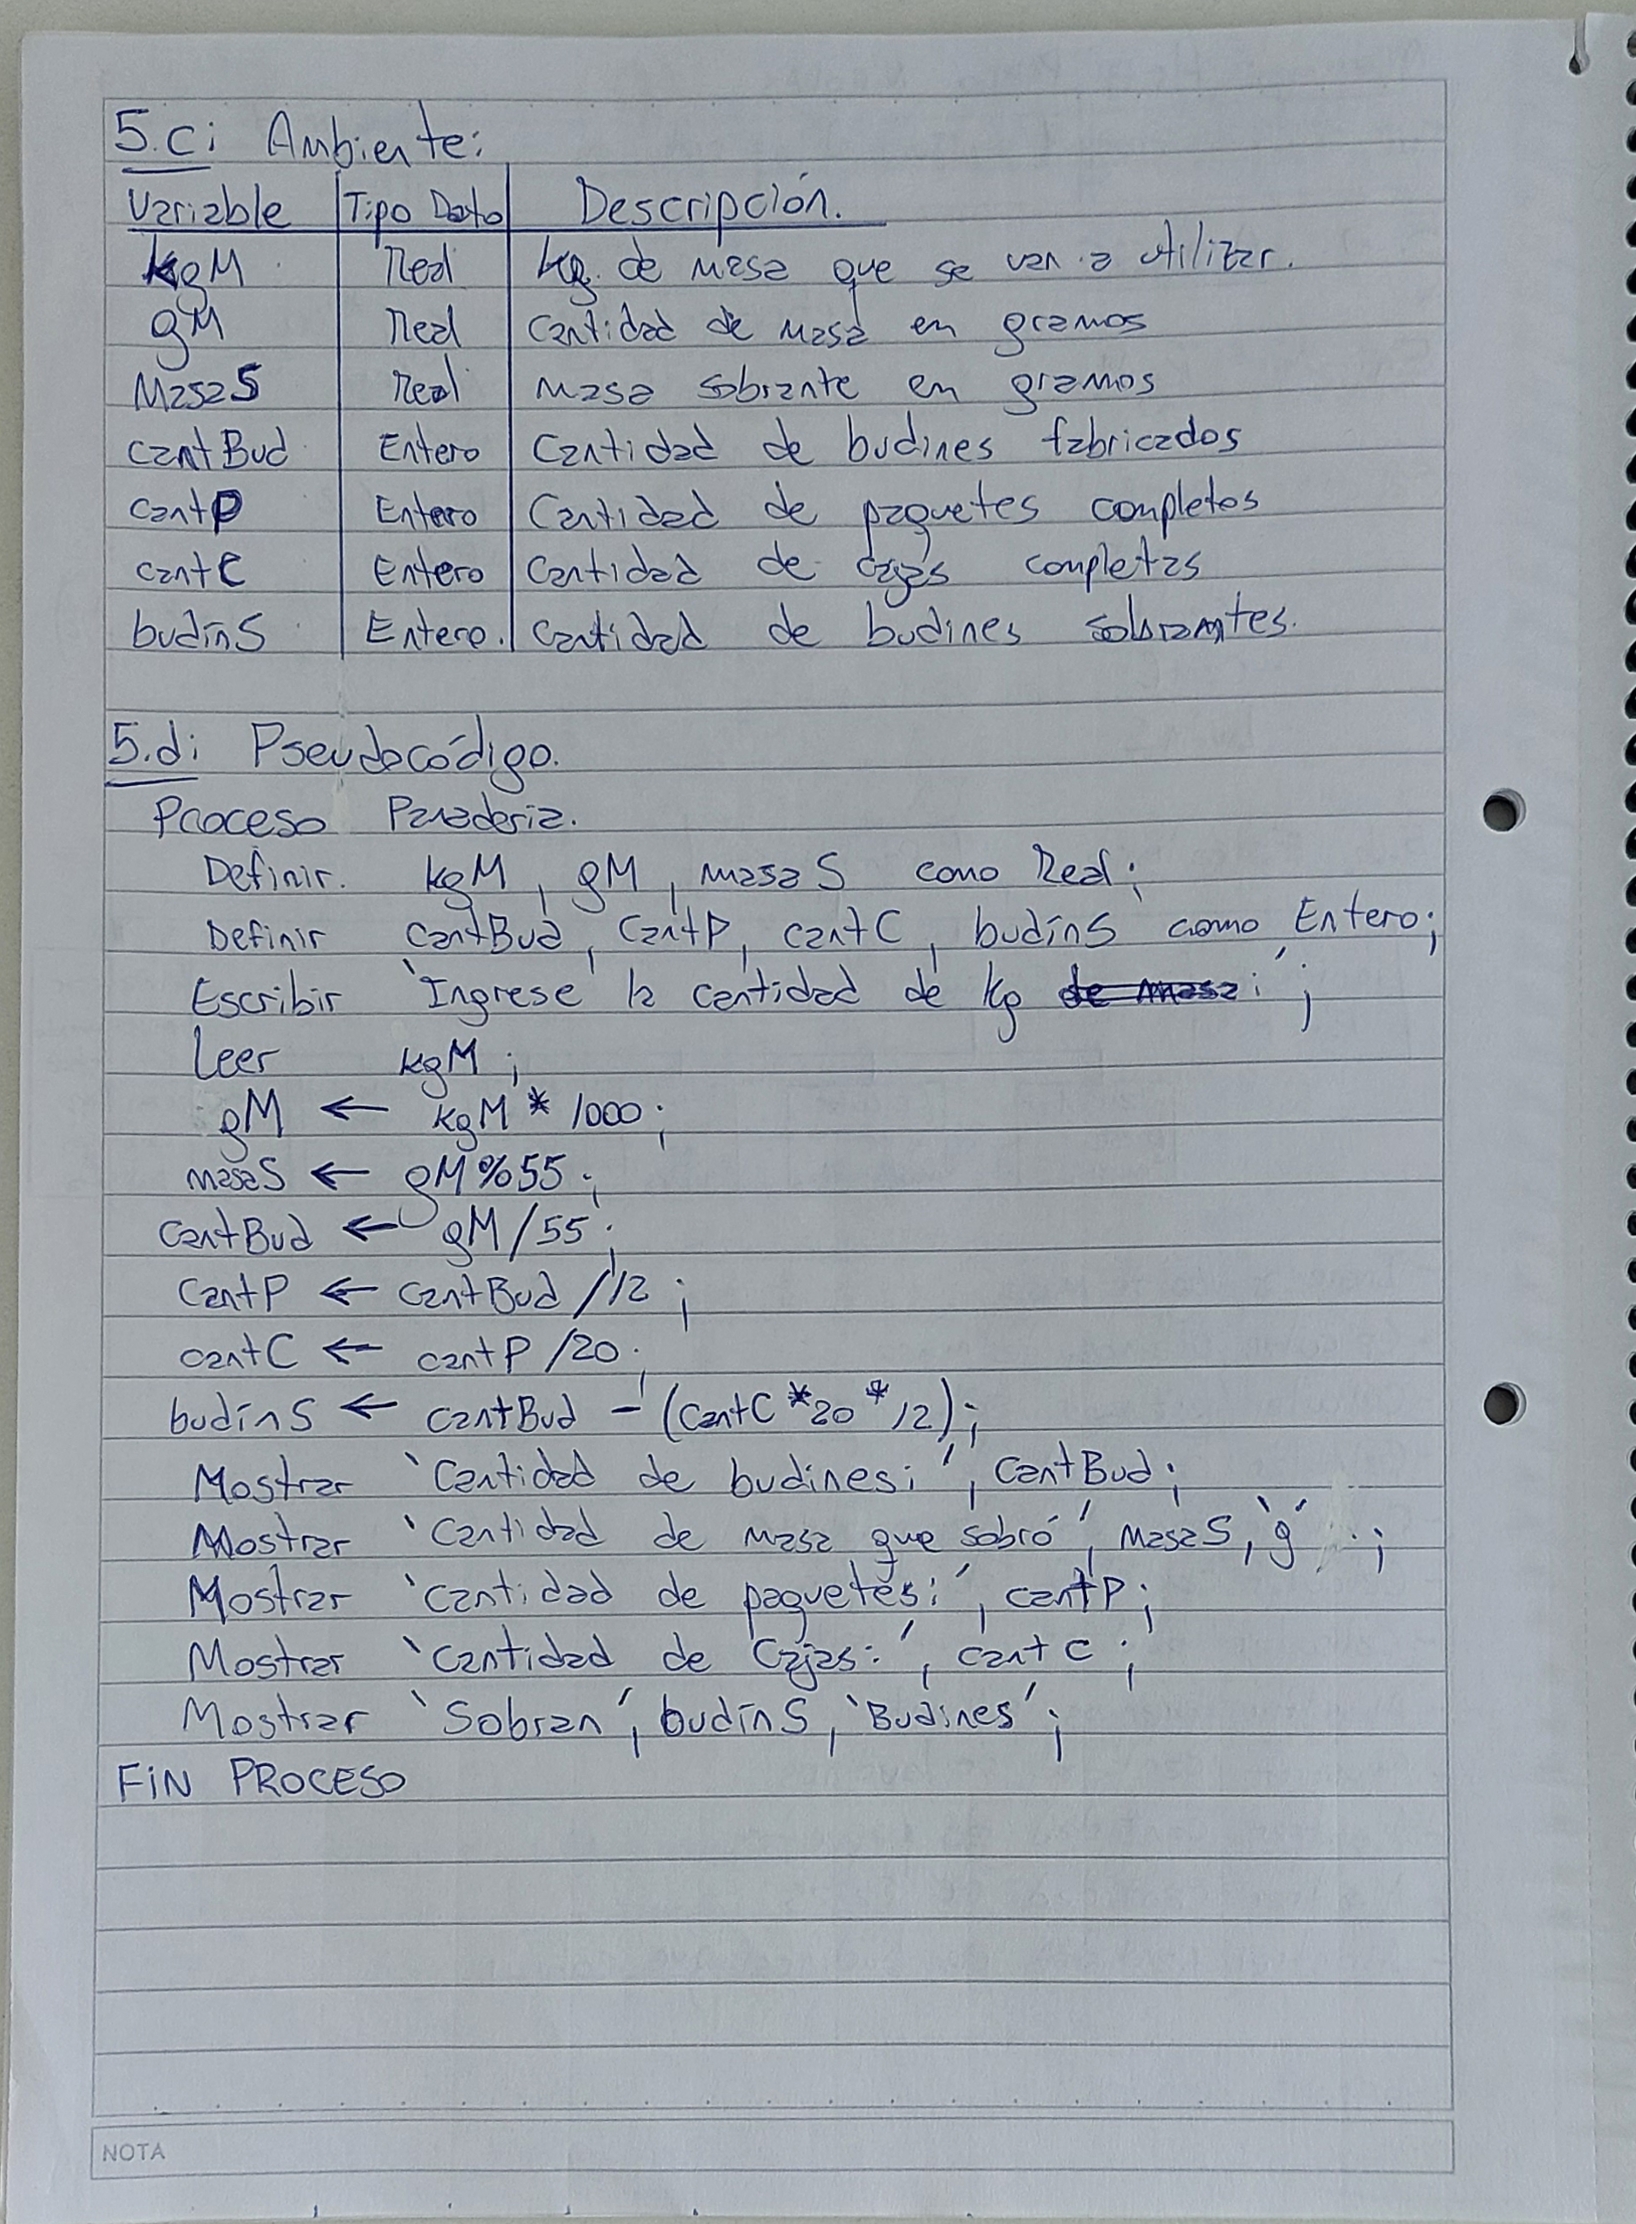 5.c: Ambiente:
Variable Tipo Dato Descripción.
kgM Real kg. de masa que se van a utilizar.
gM Real Cantidad de masa en gramos
MasaS Real masa sobrante en gramos
cantBud Entero Cantidad de budines fabricados
cantP Entero Cantidad de paquetes completos
cantC Entero Cantidad de cajas completas
budínS Entero. Cantidad de budines sobrantes.
5.d: Pseudocódigo.
Proceso Panaderia.
Definir. kgM, gM, masaS como Real;
Definir cantBud, cantP, cantC, budínS como Entero;
Escribir `Ingrese la cantidad de kg de masa:´;
Leer kgM;
gM ← kgM * 1000;
masaS ← gM%55;
cantBud ← gM/55;
cantP ← cantBud /12;
cantC ← cantP /20;
budínS ← cantBud - (cantC*20*12);
Mostrar `Cantidad de budines:´, cantBud;
Mostrar `Cantidad de masa que sobró´, masaS, `g´;
Mostrar `cantidad de paquetes:´, cantP;
Mostrar `Cantidad de Cajas:´, cantC;
Mostrar `Sobran´, budínS, `Budines´;
FIN PROCESO
NOTA